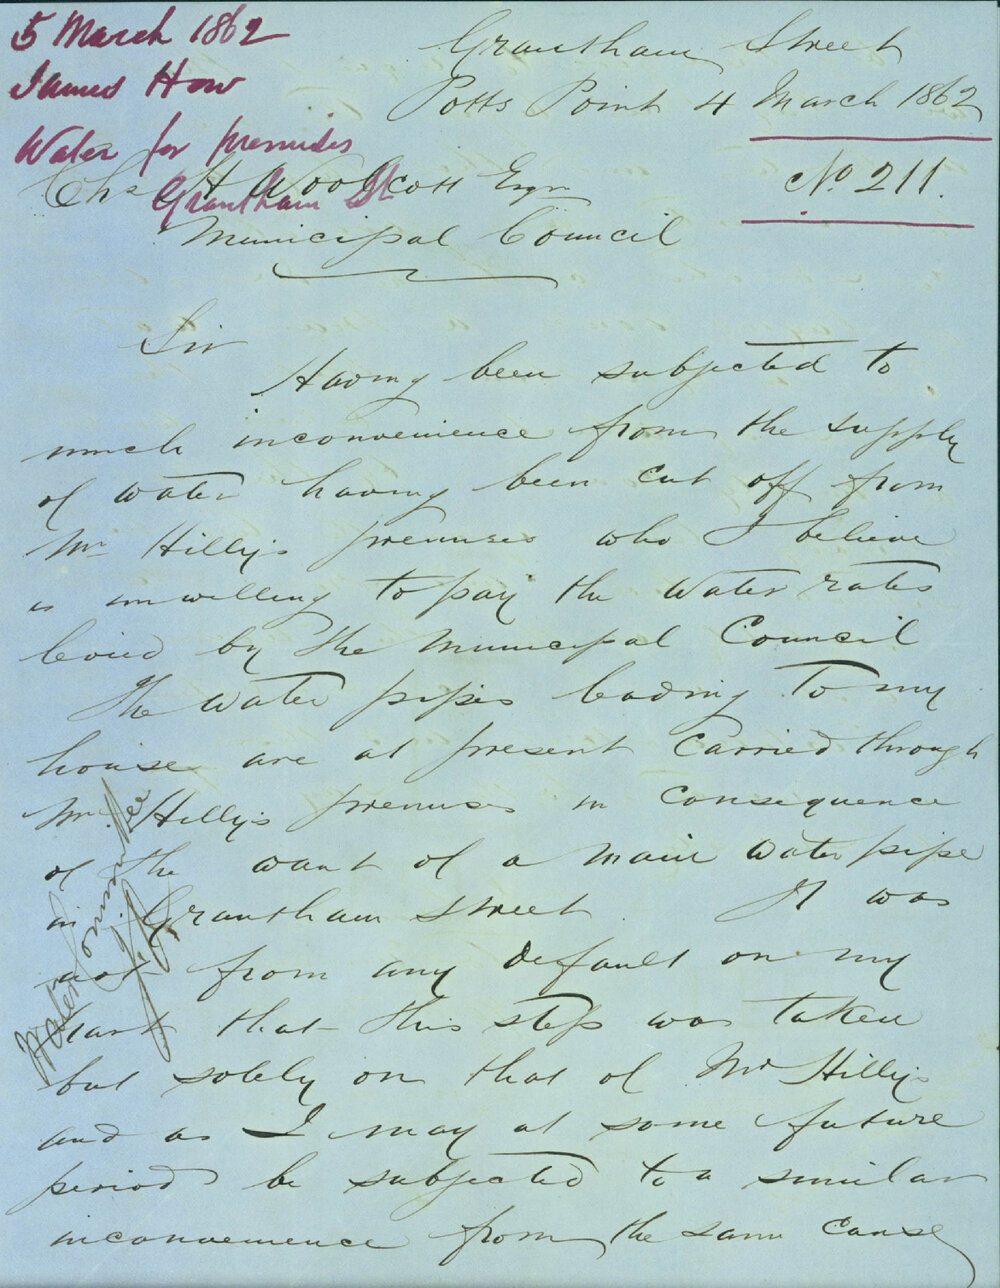 5 March 1862
James How
Water for premises
Grantham St
Grantham Street
Potts Point 4 March 1862
No. 211.
Chs H Woolcott Esqr
Municipal Council
Sir
Having been subjected to
much inconvenience from the supply
of water having been cut off from
Mr Hilly's premises who I believe
is unwilling to pay the water rates
levied by the Municipal Council
The water pipes leading to my
house are at present carried through
Mr Hilly's premises in consequence
of the want of a main water pipe
in Grantham Street. It was
not from any default on my
part that this step was taken
but solely on that of Mr Hilly's
and as I may at some future
period be subjected to a similar
inconvenience from the same cause
Water Committee